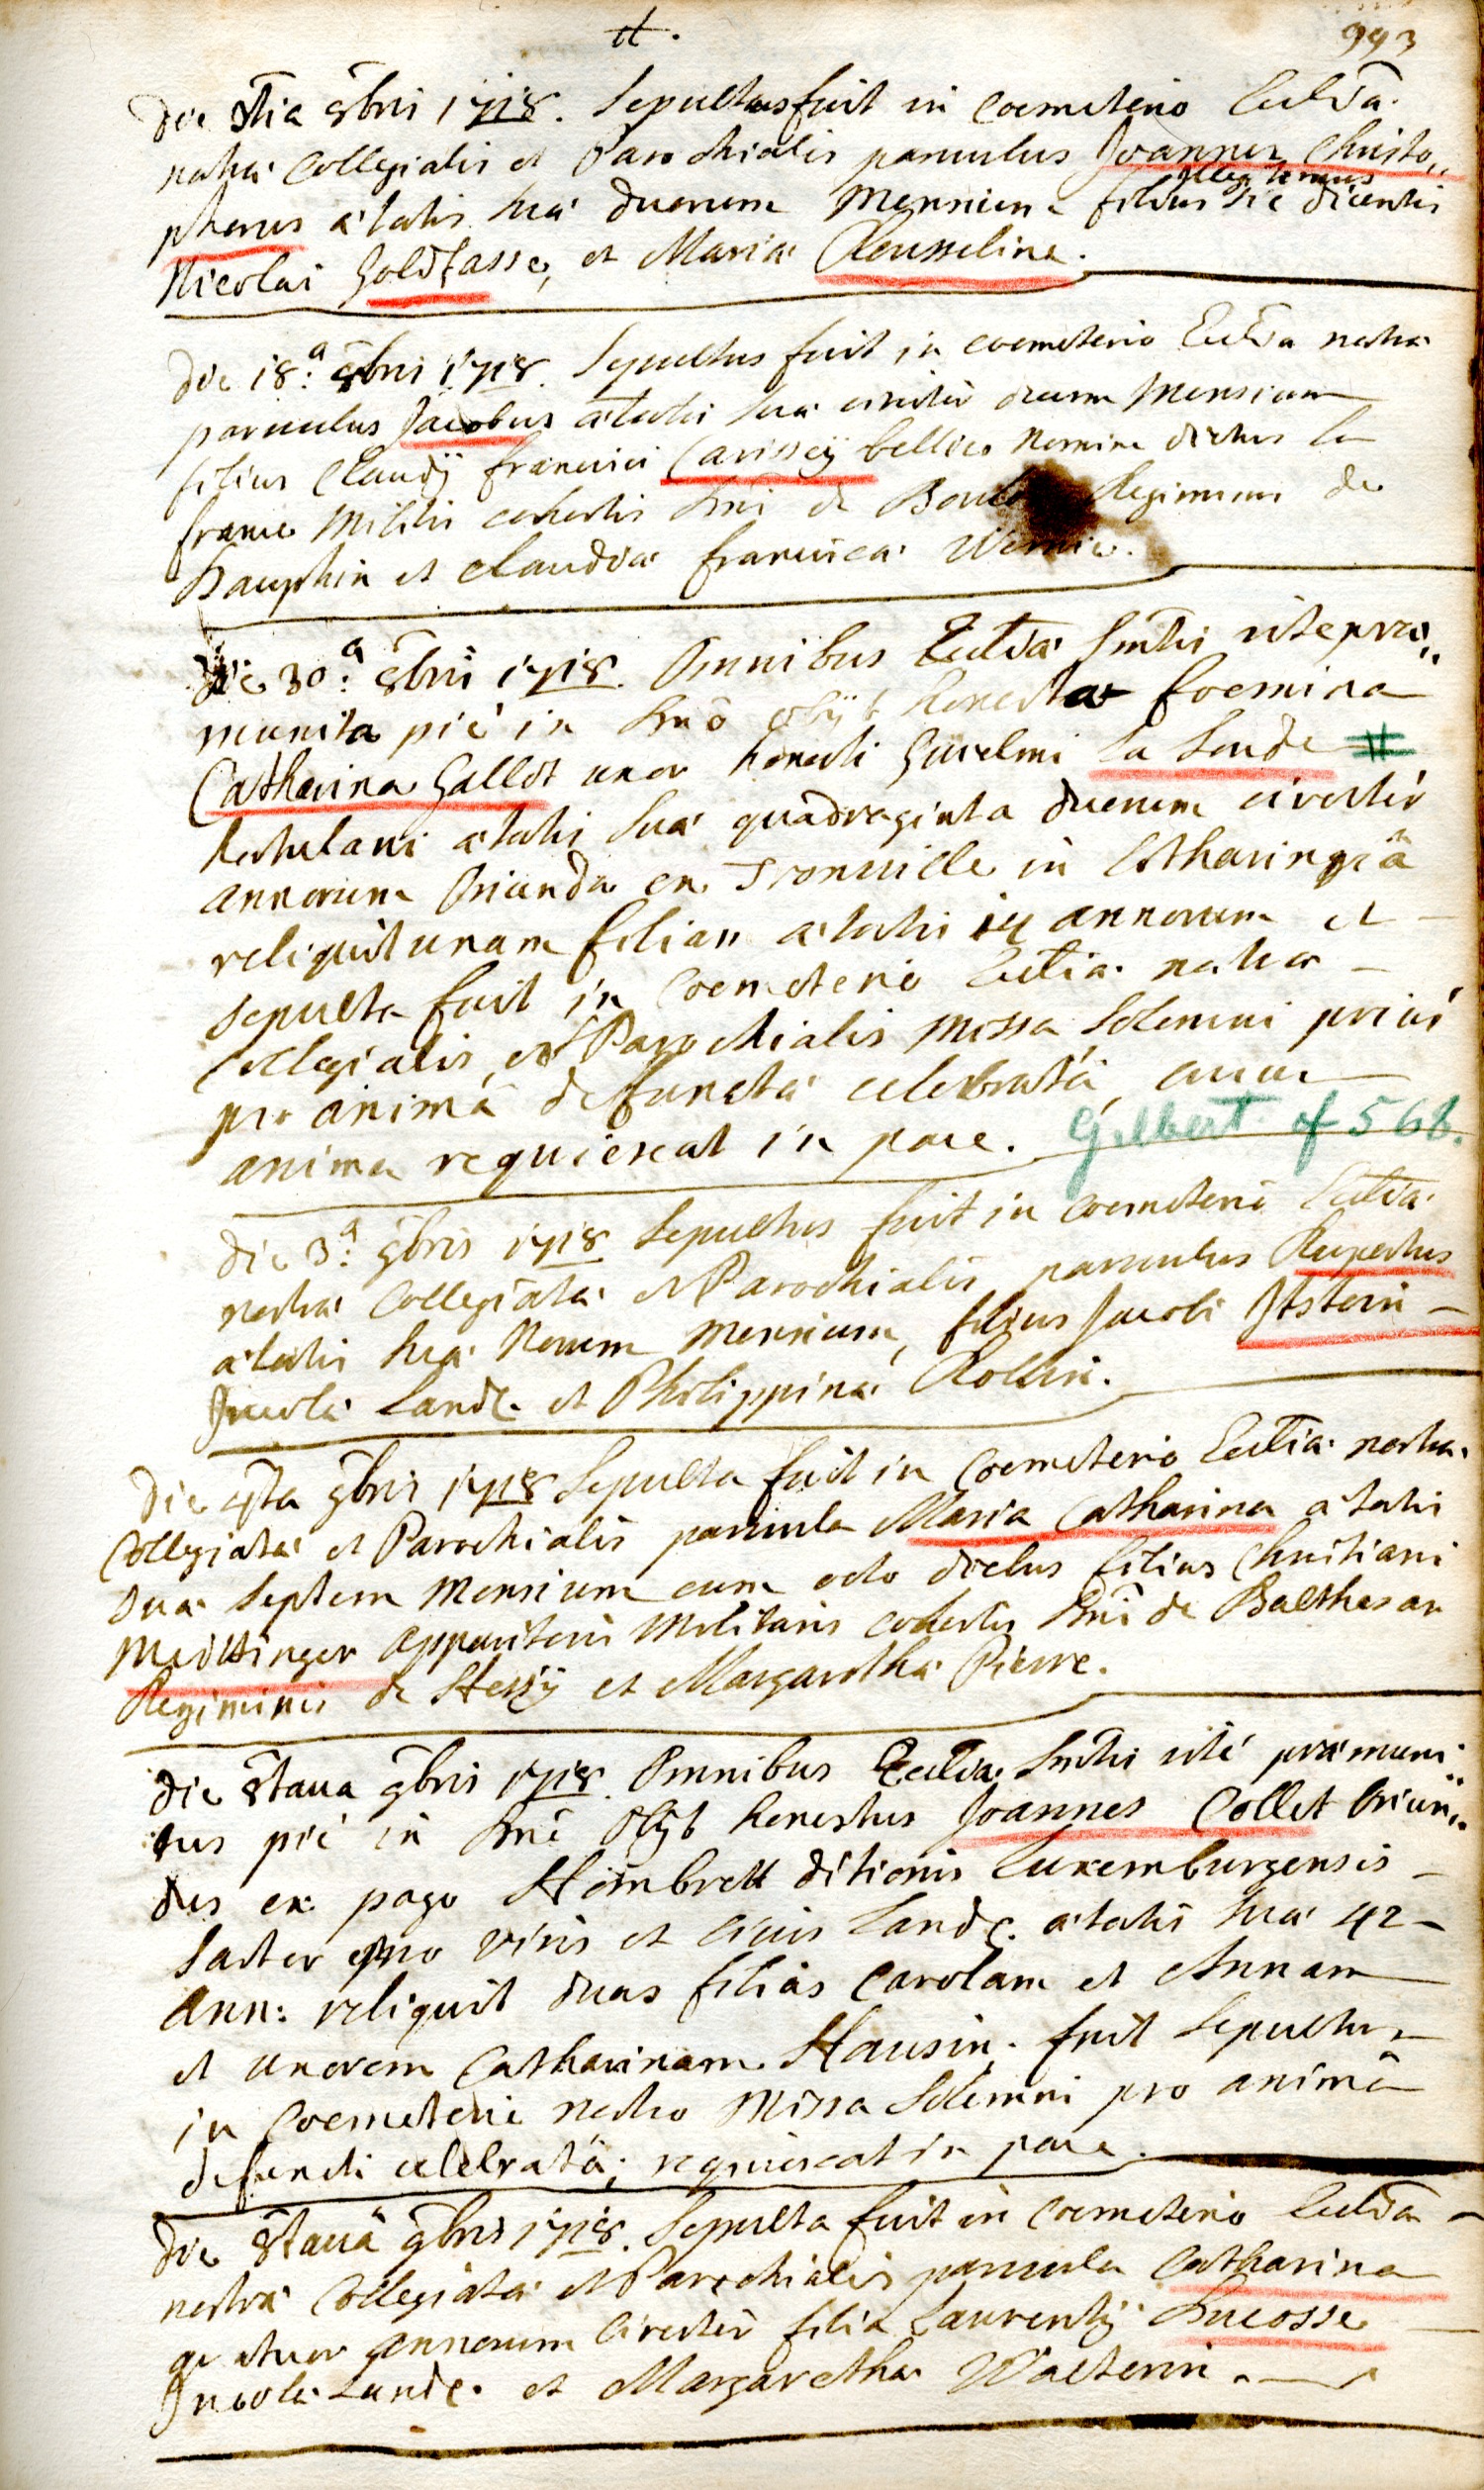 tt.
993
Die 8tia 8bris 1718. Sepultus fuit in Coemeterio Eccl̃iæ
nostræ Collegialis et Parochialis parvulus Joannes Christo„
phorus ætatis suæ duorum Mensium filius sic dicentis
Nicolai Goldtasse, et Mariæ Rousseline.
Die 18.ª 8bris 1718. Sepultus fuit in coemeterio Eccl̃iæ nostræ
parvulus Jacobus ætatis suæ circiter decem Mensium
filius Claudÿ francisci Carisseÿ bellico Nomine dictus la
france Militis cohortis Dñi de Regiminis de
Dauphin et Claudiæ franciscæ
Die 30.ª 8bris 1718. Omnibus Eccl̃iæ Sm̃tis rite præ„
munita piè in Dnõ obÿt honesta foemina
Catharina Gallot uxor honesti Guielmi La Lende #
hortulani ætatis suæ quadraginta duorum circiter
annorum Oriunda ex Tronville in Lotharingiâ
reliquit unam filiam ætatis 14 annorum et
sepulta fuit in Coemeterio Eccl̃iæ nostræ
Collegialis, et Parochialis Missa Solemni prius
pro animâ defunctæ celebratâ, cuius
anima requiescat in pace. Gilbert of 568.
Die 3.ª 9bris 1718 Sepultus fuit in coemeterio Eccl̃iæ
nostræ Collegiatæ et Parochialis parvulus Rupertus
ætatis suæ Novem Mensium, filius Jacobi Itstein
Incolæ Landæ. et Philippinæ Rollin.
Die 4ta 9bris 1718 Sepulta fuit in Coemeterio Eccl̃iæ nostræ
Collegiatæ et Parochialis parvula Maria Catharina ætatis
suæ septem Mensium cum octo diebus filius Christiani
Meidtinger apparitoris Militaris cohortis Dñi de Balthasar
Regiminis de Hessÿ et Margarethæ Pierre.
Die 8tava 9bris 1718. Omnibus Eccl̃iæ Sm̃tis ritè præmuni„
tus piè in Dno obÿt honestus Joannes Collet Oriun„
dus ex pago Hombrett ditionis Luxemburgensis
Sartor pro viris et Civis Landæ. ætatis suæ 42
ann: reliquit duas filias Carolam et Annam
et uxorem Catharinam Hausin. fuit sepultus
in Coemeterio nostro Missa Solemni pro animâ
defuncti celebratâ; requiescat in pace.
Die 8tavâ 9bris 1718. Sepulta fuit in Coemeterio Eccl̃iæ
nostræ Collegiatæ et Parochialis parvula Catharina
quatuor annorum Circiter filia Laurentÿ Ducosse
Incolæ Landæ. et Margarethæ Walterin.